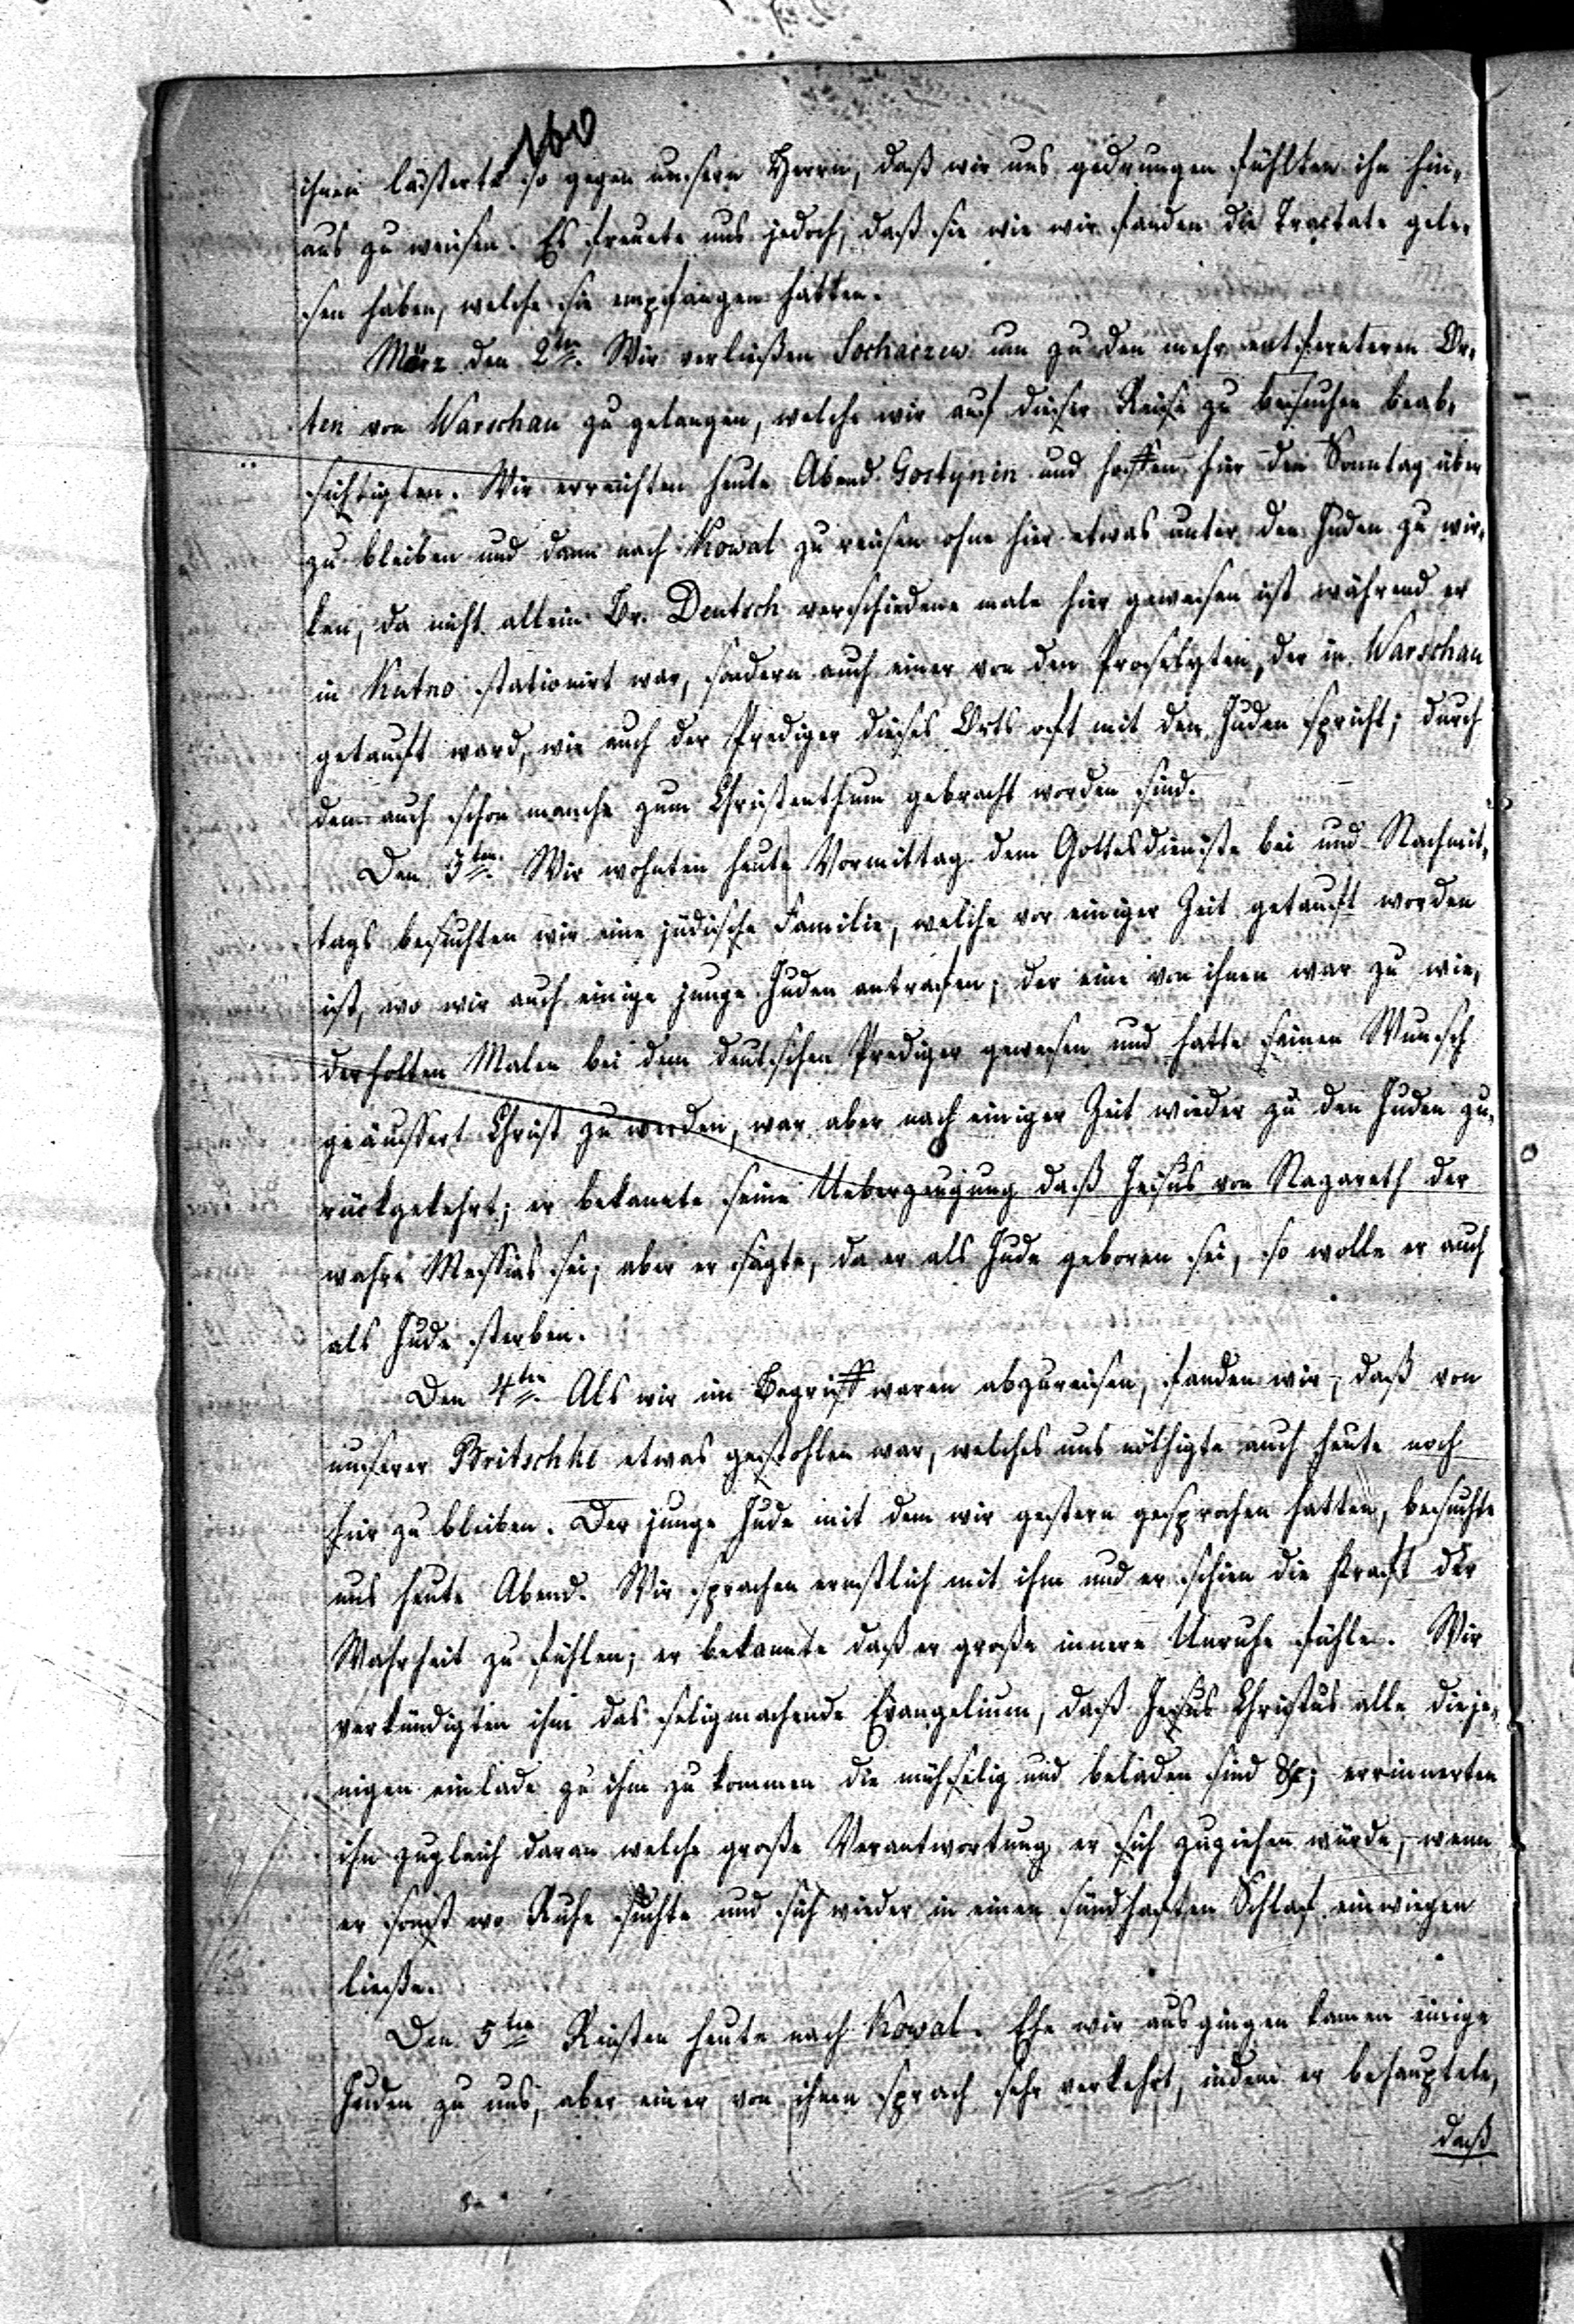 160
ihnen lästerte so gegen unsern Herrn, daß wir uns gedrungen fühlten ihn hin-
aus zu weisen. Es freuete uns jedoch, daß sie wie wir fanden die Tractate gele-
sen haben, welche sie empfangen hatten.
März den 2ten. Wir verließen Sochaczew um zu den mehr entfernteren Or-
ten von Warschau zu gelangen, welche wir auf dieser Reise zu besuchen beab-
sichtigten. Wir erreichten heute Abend Gostynin und hoffen hier den Sonntag über
zu bleiben und dann nach Kowal zu reisen ohne hier etwas unter den Juden zu wir-
ken, da nicht allein Br. Deutsch verschiedene male hier gewesen ist während er
in Kutno stationirt war, sondern auch einer von den Proselyten, der in Warschau
getauft ward, wie auch der Prediger dieses Orts oft mit den Juden spricht; durch
dem auch schon manche zum Christenthum gebracht worden sind.
Den 3ten. Wir wohnten heute Vormittag dem Gottesdienste bei und Nachmit-
tags besuchten wir eine jüdische Familie, welche vor einiger Zeit getauft worden
ist, wo wir auch einige junge Juden antrafen; der eine von ihnen war zu wie-
derholten Malen bei dem deutschen Prediger gewesen und hatte seinen Wunsch
geäussert Christ zu werden, war aber nach einiger Zeit wieder zu den Juden zu-
rückgekehrt; er bekannte seine Ueberzeugung daß Jesus von Nazareth der
wahre Messias sei; aber er sagte, da er als Jude geboren sei, so wolle er auch
als Jude sterben.
Den 4ten Als wir im Begriff waren abzureisen, fanden wir, daß von
unserer Britschke etwas gestohlen war, welches uns nöthigte auch heute noch
hier zu bleiben. Der junge Jude mit dem wir gestern gesprochen hatten, besuchte
uns heute Abend. Wir sprachen ernstlich mit ihm und er schien die Kraft der
Wahrheit zu fühlen; er bekannte daß er große innere Unruhe fühle. Wir
verkündigten ihm das seligmachende Evangelium, daß Jesus Christus alle dieje-
nigen einlade zu ihm zu kommen die mühselig und beladen sind &c; errinnerten
ihn zugleich daran welche große Verantwortung er sich zuziehen würde, wenn
er sonst wo Ruhe suchte und sich wieder in einen sündhaften Schlaf einwiegen
ließe.
Den 5ten Reisten heute nach Kowal. Ehe wir ausgingen kamen einige
Juden zu uns, aber einer von ihnen sprach sehr verkehrt, indem er behauptete,
daß